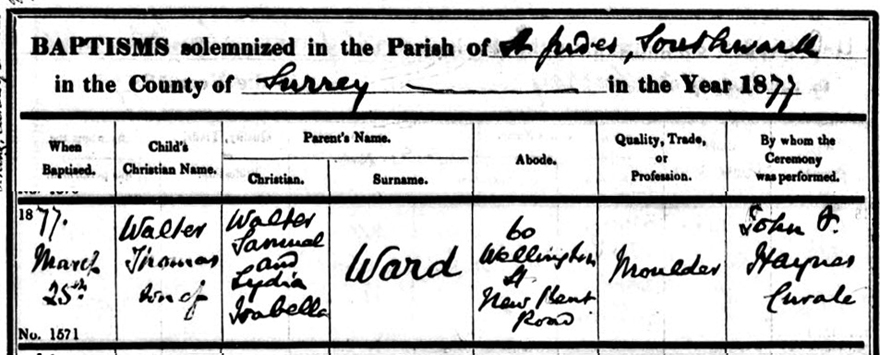 BAPTISMS solemnized in the Parish of St Judes, Southwark
in the County of Surrey in the Year 1877
When
Baptised.
Child's
Christian Name.
Parent's Name.
Christian.
Surname.
Abode.
Quality, Trade,
or
Profession.
By whom the
Ceremony
was performed.
1877.
March
25th
No. 1571
Walter
Thomas
son of
Walter
Samuel
and
Lydia
Isabella
Ward
60
Wellington
St
New Kent
Road
Moulder
John
Haynes
Curate